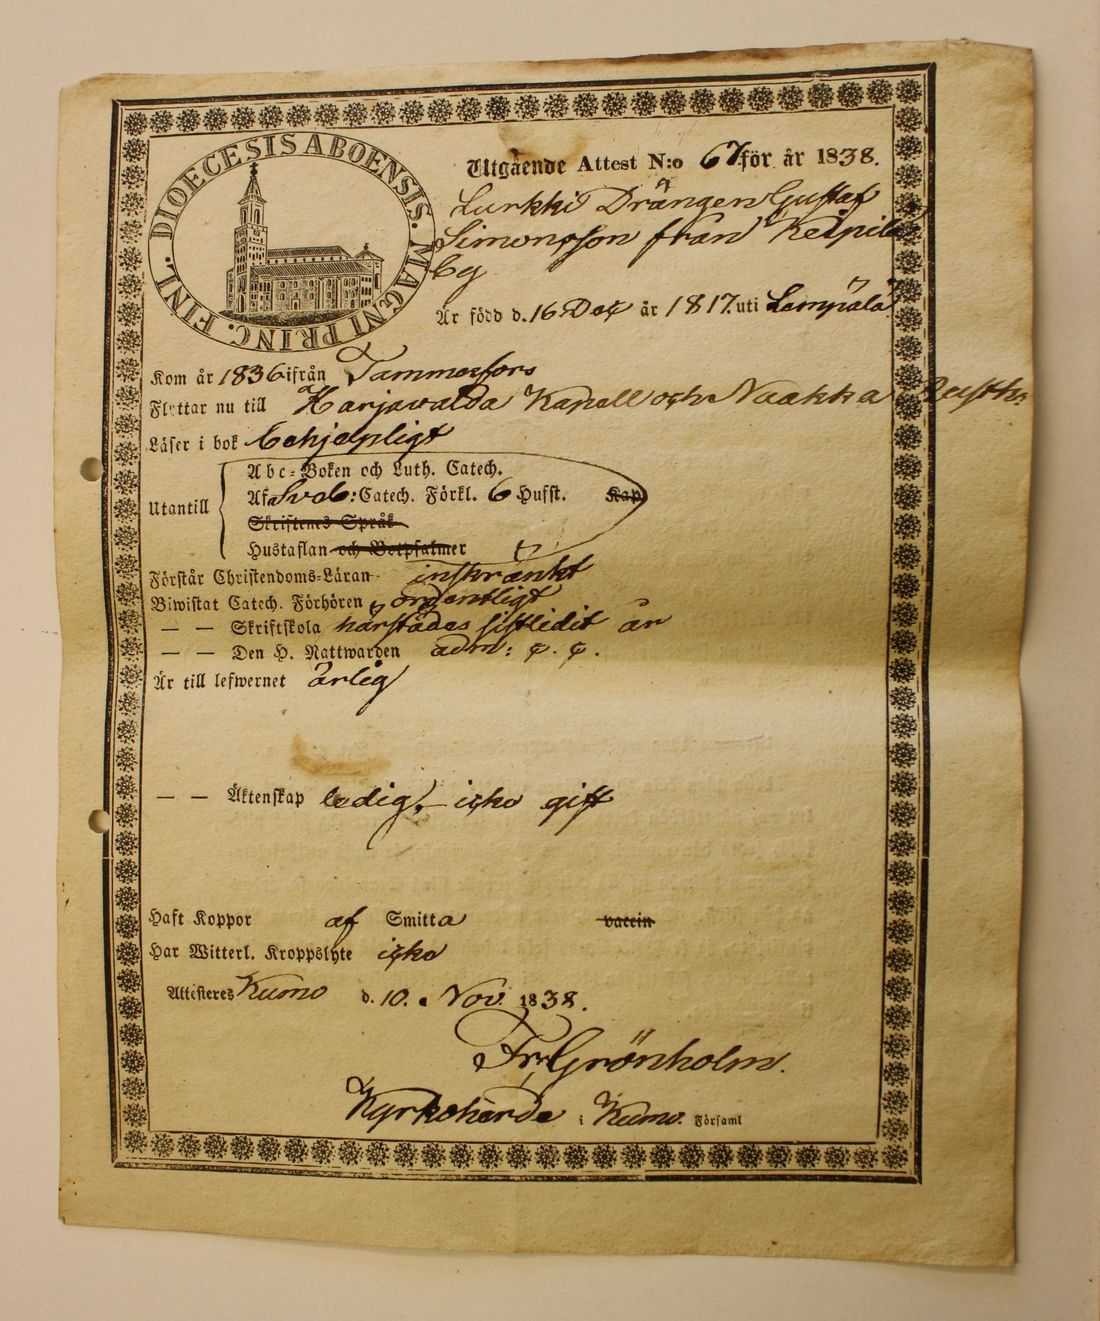 DIOECESIS ABOENSIS. MAGNI PRINC. FINL.
Utgående Attest N:o 67 för år 1838.
Lurkki Drängen Gustaf
Simonsson från Keipilä
by
Är född d. 16 Dec är 1817. uti Lempäälä
Kom år 1836 ifrån Tammerfors
Flyttar nu till Harjawalda Kapell och Naakka Rusth:
Läser i bok behjelpligt
Abc-Boken och Luth. Catech.
Utantill Af Sveb: Catech. Förkl. 6 Hufst. Kap
Skriftenes Språk
Hustaflan och Botpsalmer
Förstår Christendoms-Läran inskränkt
Biwistat Catech. Förhören ordentligt
— — Skriftskola härstädes sistledit år
— — Den H. Nattwarden adm: c. c.
Är till lefwernet ärlig
— — Äktenskap ledig, icke gift
Haft Koppor af Smitta vaccin
Har Witterl. Kroppslyte icke
Attesteres Kumo d. 10. Nov. 1838.
Fr. Grönholm.
Kyrkoherde i Kumo. Församl